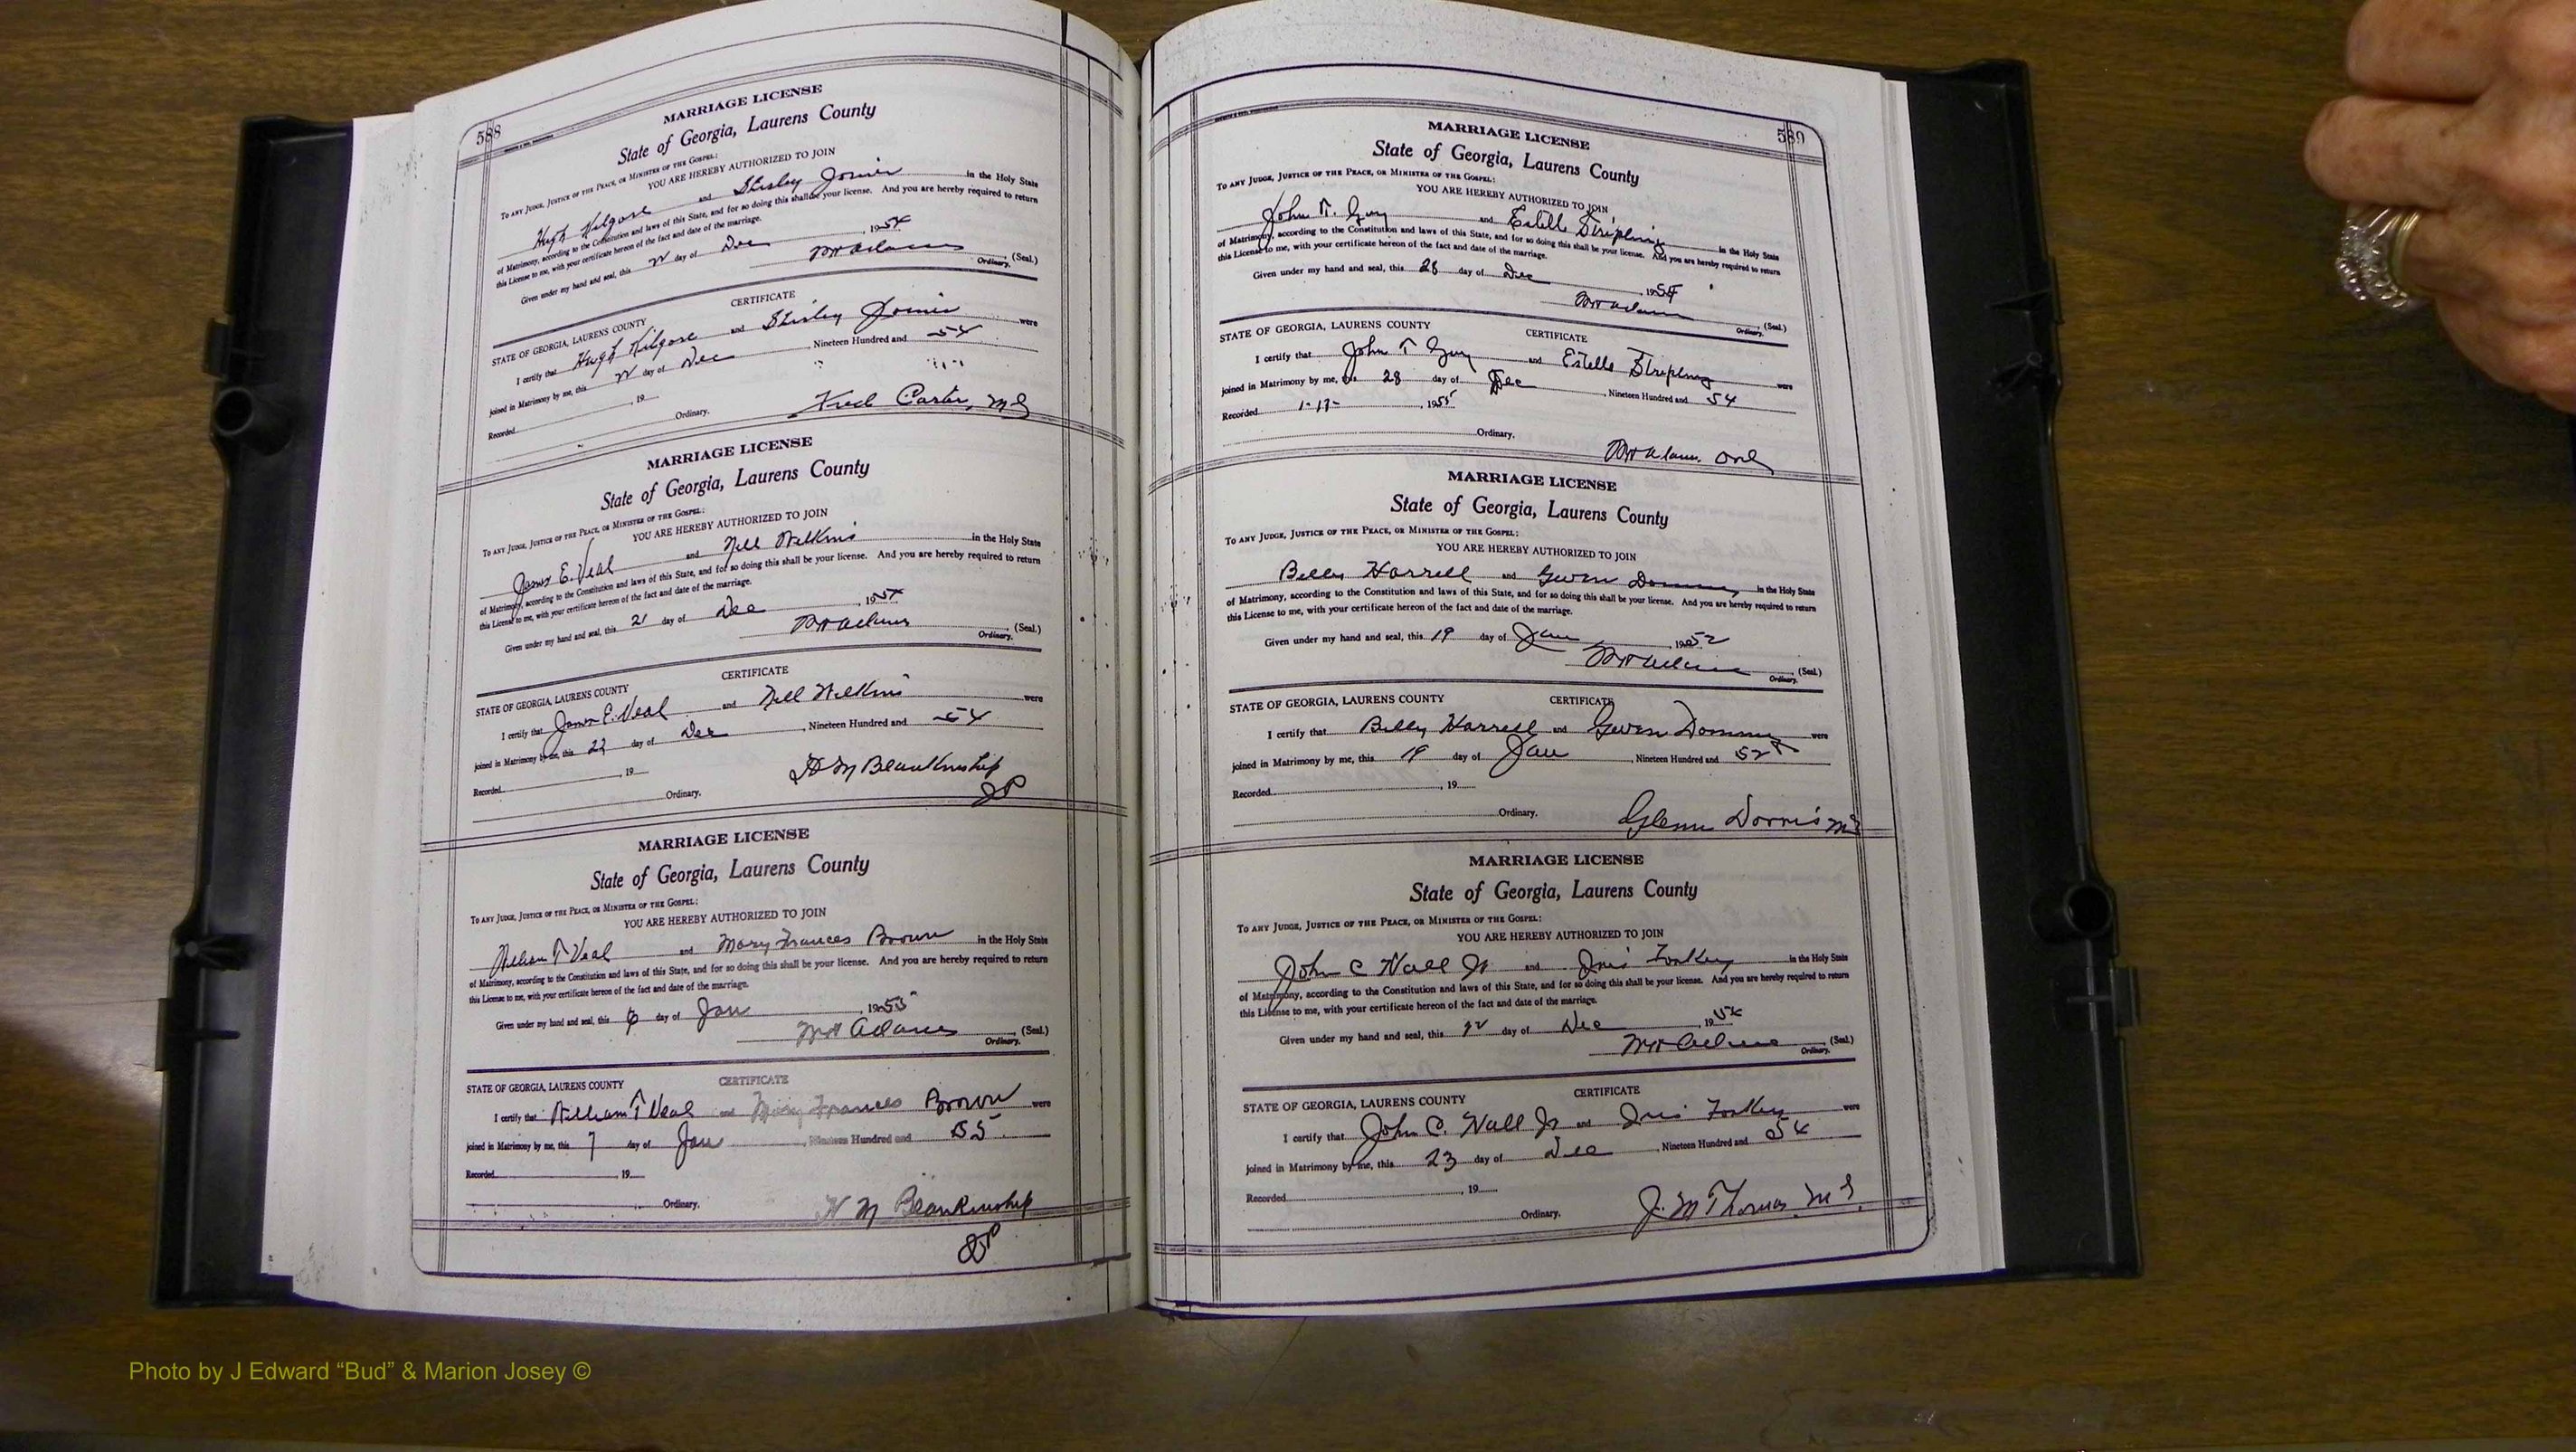 588
MARRIAGE LICENSE
State of Georgia, Laurens County
TO ANY JUDGE, JUSTICE OF THE PEACE, OR MINISTER OF THE GOSPEL:
YOU ARE HEREBY AUTHORIZED TO JOIN
Hugh Kilgore and Shirley Joiner in the Holy State
of Matrimony, according to the Constitution and laws of this State, and for so doing this shall be your license. And you are hereby required to return
this License to me, with your certificate hereon of the fact and date of the marriage.
Given under my hand and seal, this 22 day of Dec, 1954
(Seal.)
Ordinary.
CERTIFICATE
STATE OF GEORGIA, LAURENS COUNTY
I certify that Hugh Kilgore and Shirley Joiner were
joined in Matrimony by me, this 22 day of Dec, Nineteen Hundred and 54
Recorded, 19
Ordinary.
Fred Carter, MG
MARRIAGE LICENSE
State of Georgia, Laurens County
TO ANY JUDGE, JUSTICE OF THE PEACE, OR MINISTER OF THE GOSPEL:
YOU ARE HEREBY AUTHORIZED TO JOIN
James E. Veal and Nell Wilkins in the Holy State
of Matrimony, according to the Constitution and laws of this State, and for so doing this shall be your license. And you are hereby required to return
this License to me, with your certificate hereon of the fact and date of the marriage.
Given under my hand and seal, this 21 day of Dec, 1954
(Seal.)
Ordinary.
CERTIFICATE
STATE OF GEORGIA, LAURENS COUNTY
I certify that James E. Veal and Nell Wilkins were
joined in Matrimony by me, this 22 day of Dec, Nineteen Hundred and 54
Recorded, 19
Ordinary.
JP
MARRIAGE LICENSE
State of Georgia, Laurens County
TO ANY JUDGE, JUSTICE OF THE PEACE, OR MINISTER OF THE GOSPEL:
YOU ARE HEREBY AUTHORIZED TO JOIN
William T Veal and Mary Frances Brown in the Holy State
of Matrimony, according to the Constitution and laws of this State, and for so doing this shall be your license. And you are hereby required to return
this License to me, with your certificate hereon of the fact and date of the marriage.
Given under my hand and seal, this 6 day of Jan, 1955
Adams (Seal.)
Ordinary.
CERTIFICATE
STATE OF GEORGIA, LAURENS COUNTY
I certify that William T Veal and Mary Frances Brown were
joined in Matrimony by me, this 7 day of Jan, Nineteen Hundred and 55
Recorded, 19
Ordinary.
JP
589
MARRIAGE LICENSE
State of Georgia, Laurens County
TO ANY JUDGE, JUSTICE OF THE PEACE, OR MINISTER OF THE GOSPEL:
YOU ARE HEREBY AUTHORIZED TO JOIN
John T. Guy and Estelle Stripling in the Holy State
of Matrimony, according to the Constitution and laws of this State, and for so doing this shall be your license. And you are hereby required to return
this License to me, with your certificate hereon of the fact and date of the marriage.
Given under my hand and seal, this 28 day of Dec, 1954
(Seal.)
Ordinary.
STATE OF GEORGIA, LAURENS COUNTY CERTIFICATE
I certify that John T Guy and Estelle Stripling were
joined in Matrimony by me, this 28 day of Dec, Nineteen Hundred and 54
Recorded 1-17-, 1955
Ordinary.
Ord
MARRIAGE LICENSE
State of Georgia, Laurens County
TO ANY JUDGE, JUSTICE OF THE PEACE, OR MINISTER OF THE GOSPEL:
YOU ARE HEREBY AUTHORIZED TO JOIN
Billy Harrell and Gwen in the Holy State
of Matrimony, according to the Constitution and laws of this State, and for so doing this shall be your license. And you are hereby required to return
this License to me, with your certificate hereon of the fact and date of the marriage.
Given under my hand and seal, this 19 day of Jan, 1952
(Seal.)
Ordinary.
STATE OF GEORGIA, LAURENS COUNTY CERTIFICATE
I certify that Billy Harrell and Gwen were
joined in Matrimony by me, this 19 day of Jan, Nineteen Hundred and 52
Recorded, 19
Ordinary.
Glenn Dorris MG
MARRIAGE LICENSE
State of Georgia, Laurens County
TO ANY JUDGE, JUSTICE OF THE PEACE, OR MINISTER OF THE GOSPEL:
YOU ARE HEREBY AUTHORIZED TO JOIN
John C Jr and Iris in the Holy State
of Matrimony, according to the Constitution and laws of this State, and for so doing this shall be your license. And you are hereby required to return
this License to me, with your certificate hereon of the fact and date of the marriage.
Given under my hand and seal, this 22 day of Dec, 1954
(Seal.)
Ordinary.
CERTIFICATE
STATE OF GEORGIA, LAURENS COUNTY
I certify that John C. Jr and Iris were
joined in Matrimony by me, this 23 day of Dec, Nineteen Hundred and 54
Recorded, 19
Ordinary.
J. M Thomas, MG
Photo by J Edward “Bud” & Marion Josey ©